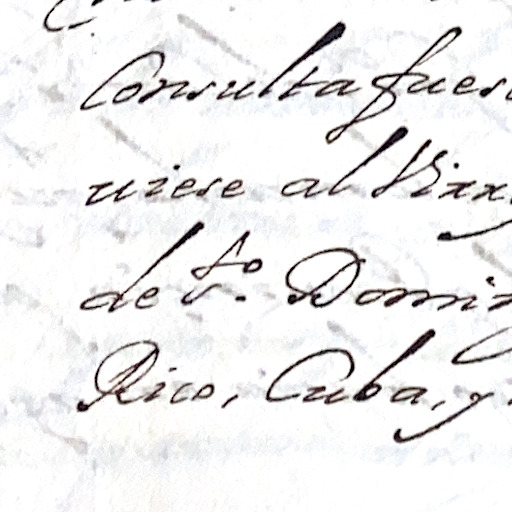 Consulta fuese
viese al Virr
de Sto. Domin
Rico, Cuba, y